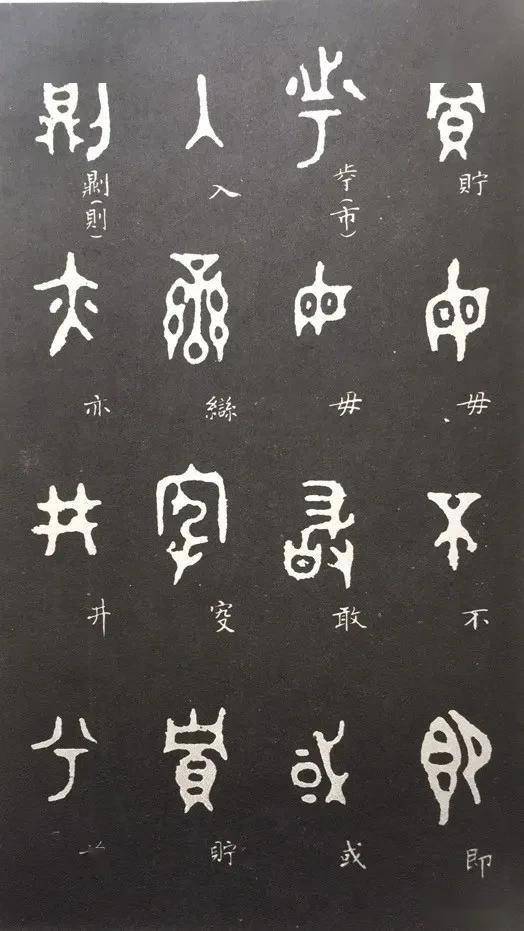 貯毋不即
(市)毋敢或
入䜌貯
𠟭(則)亦井兮